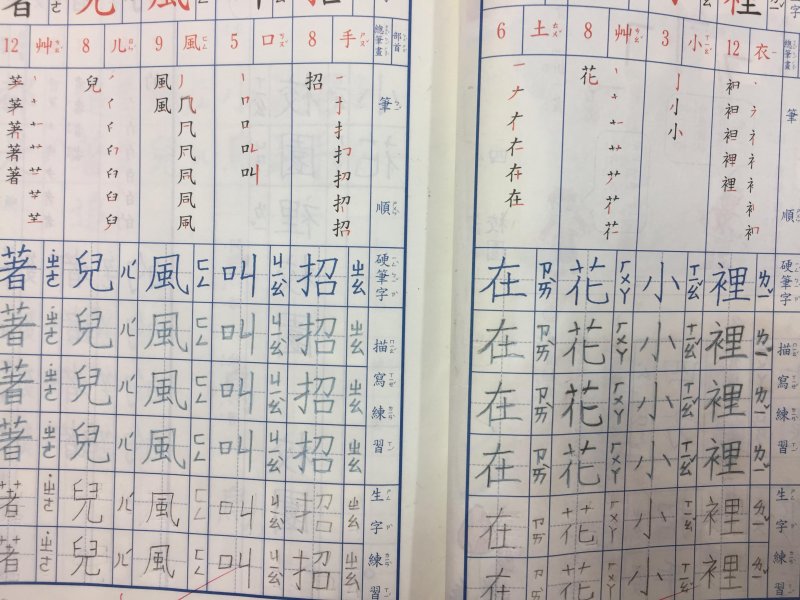 字
總筆畫
筆順
硬筆字
描寫練習
生字練習
裡
衣 12
初 衵 袒 裡 裡
裡 ㄌㄧˇ
裡 ㄌㄧˇ
裡 ㄌㄧˇ
裡 ㄌㄧˇ
裡 ㄌㄧˇ
裡 ㄌㄧˇ
小 3
亅 小 小
小 ㄒㄧㄠˇ
小 ㄒㄧㄠˇ
小 ㄒㄧㄠˇ
小 ㄒㄧㄠˇ
小 ㄒㄧㄠˇ
小 ㄒㄧㄠˇ
艸 8
花
花 ㄏㄨㄚ
花 ㄏㄨㄚ
花 ㄏㄨㄚ
花 ㄏㄨㄚ
花 ㄏㄨㄚ
花 ㄏㄨㄚ
土 6
一 ナ 在 在
在 ㄗㄞˋ
在 ㄗㄞˋ
在 ㄗㄞˋ
在 ㄗㄞˋ
在 ㄗㄞˋ
在 ㄗㄞˋ
部首
總筆畫
筆順
硬筆字
描寫練習
生字練習
招
手 8
一 十 扌 扣 招 招 招
招 ㄓㄠ
招 ㄓㄠ
招 ㄓㄠ
招 ㄓㄠ
招 ㄓㄠ
招 ㄓㄠ
口 5
口 口 叫 叫
叫 ㄐㄧㄠˋ
叫 ㄐㄧㄠˋ
叫 ㄐㄧㄠˋ
叫 ㄐㄧㄠˋ
叫 ㄐㄧㄠˋ
叫 ㄐㄧㄠˋ
風
風 9
丿 几 凡 風 風 風
風 ㄈㄥ
風 ㄈㄥ
風 ㄈㄥ
風 ㄈㄥ
風 ㄈㄥ
風 ㄈㄥ
兒
儿 8
臼 兒 兒
兒 ㄦˊ
兒 ㄦˊ
兒 ㄦˊ
兒 ㄦˊ
兒 ㄦˊ
兒 ㄦˊ
著
艸 12
著 著 著
著 ㄓㄜ˙
著 ㄓㄜ˙
著 ㄓㄜ˙
著 ㄓㄜ˙
著 ㄓㄜ˙
著 ㄓㄜ˙